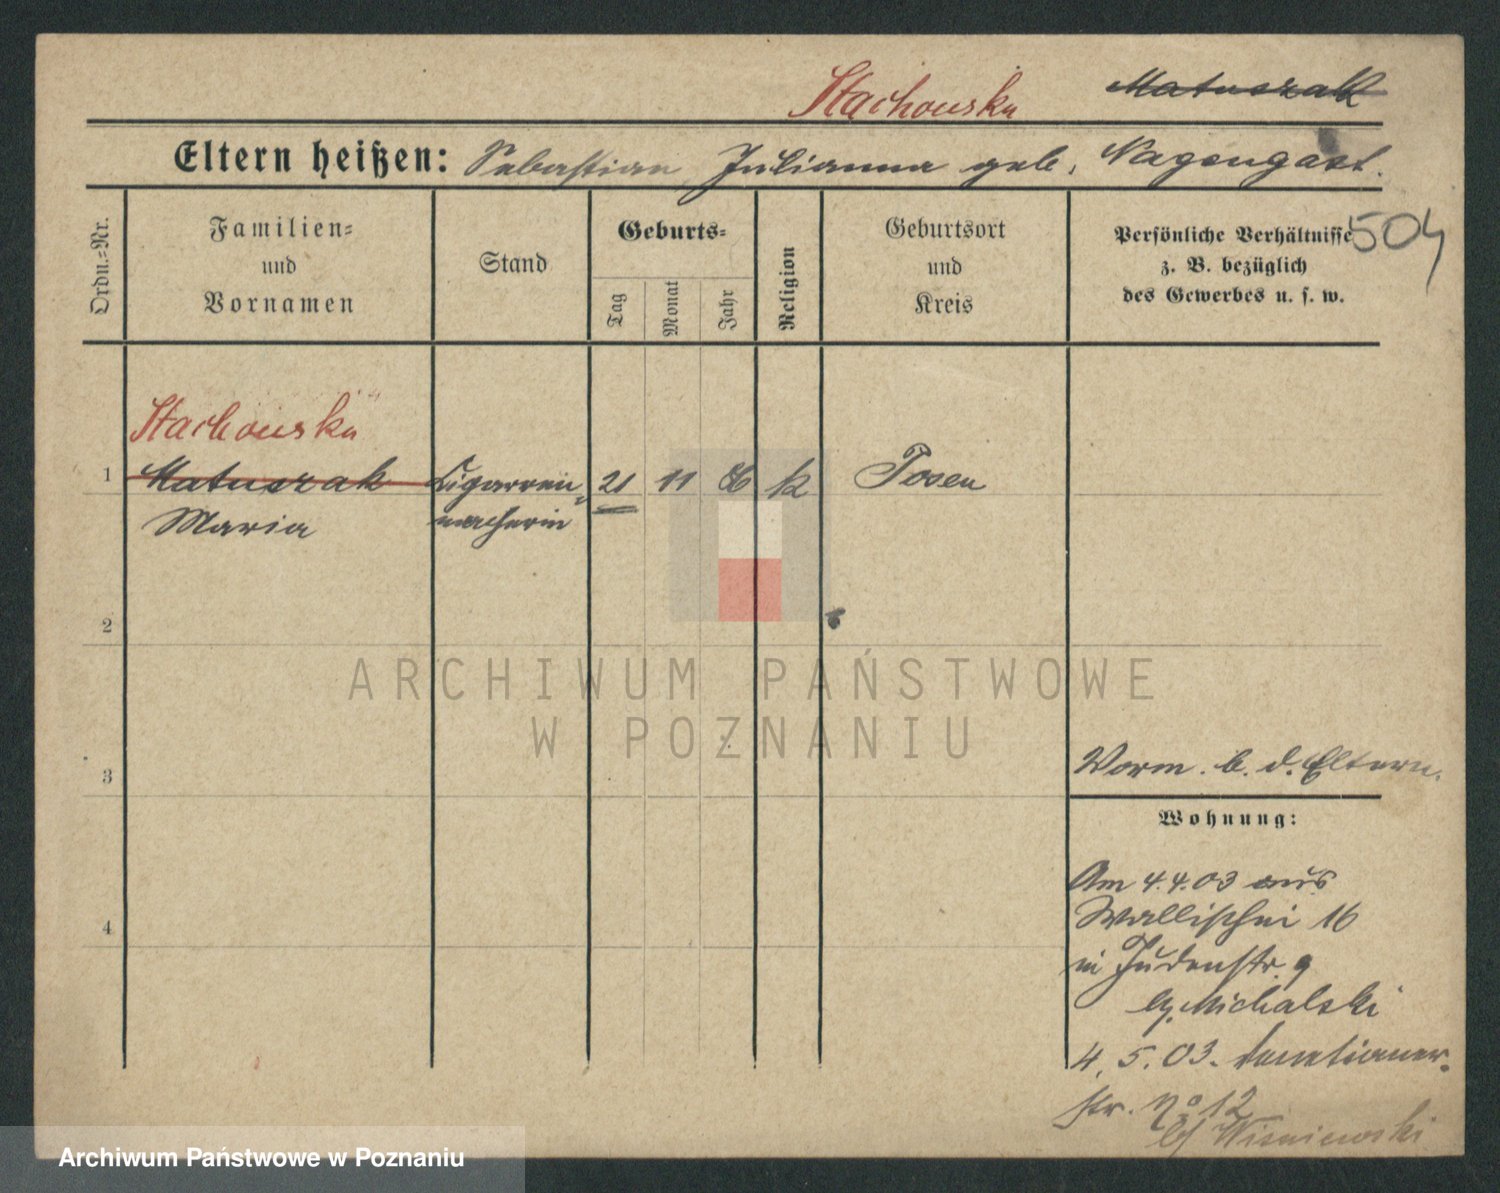 Stachowska Matuszak
Eltern heißen: Sebastian, Julianna geb. Nagengast.
504
Ordn.=Nr.
Familien=
und
Vornamen
Stand
Geburts=
Tag
Monat
Jahr
Religion
Geburtsort
und
Kreis
Persönliche Verhältnisse
z. B. bezüglich
des Gewerbes u. s. w.
Stachowska
1 Matuszak Cigarren= 21 11 86 k Posen
Maria macherin
2
3
4
Vorm. b. d. Eltern.
Wohnung:
Am 4.4.03 aus
Wallischei 16
in Judenstr. 9
b/. Michalski
4. 5. 03.
str. No 12
b/ Wisniewski
ARCHIWUM PAŃSTWOWE
W POZNANIU
Archiwum Państwowe w Poznaniu